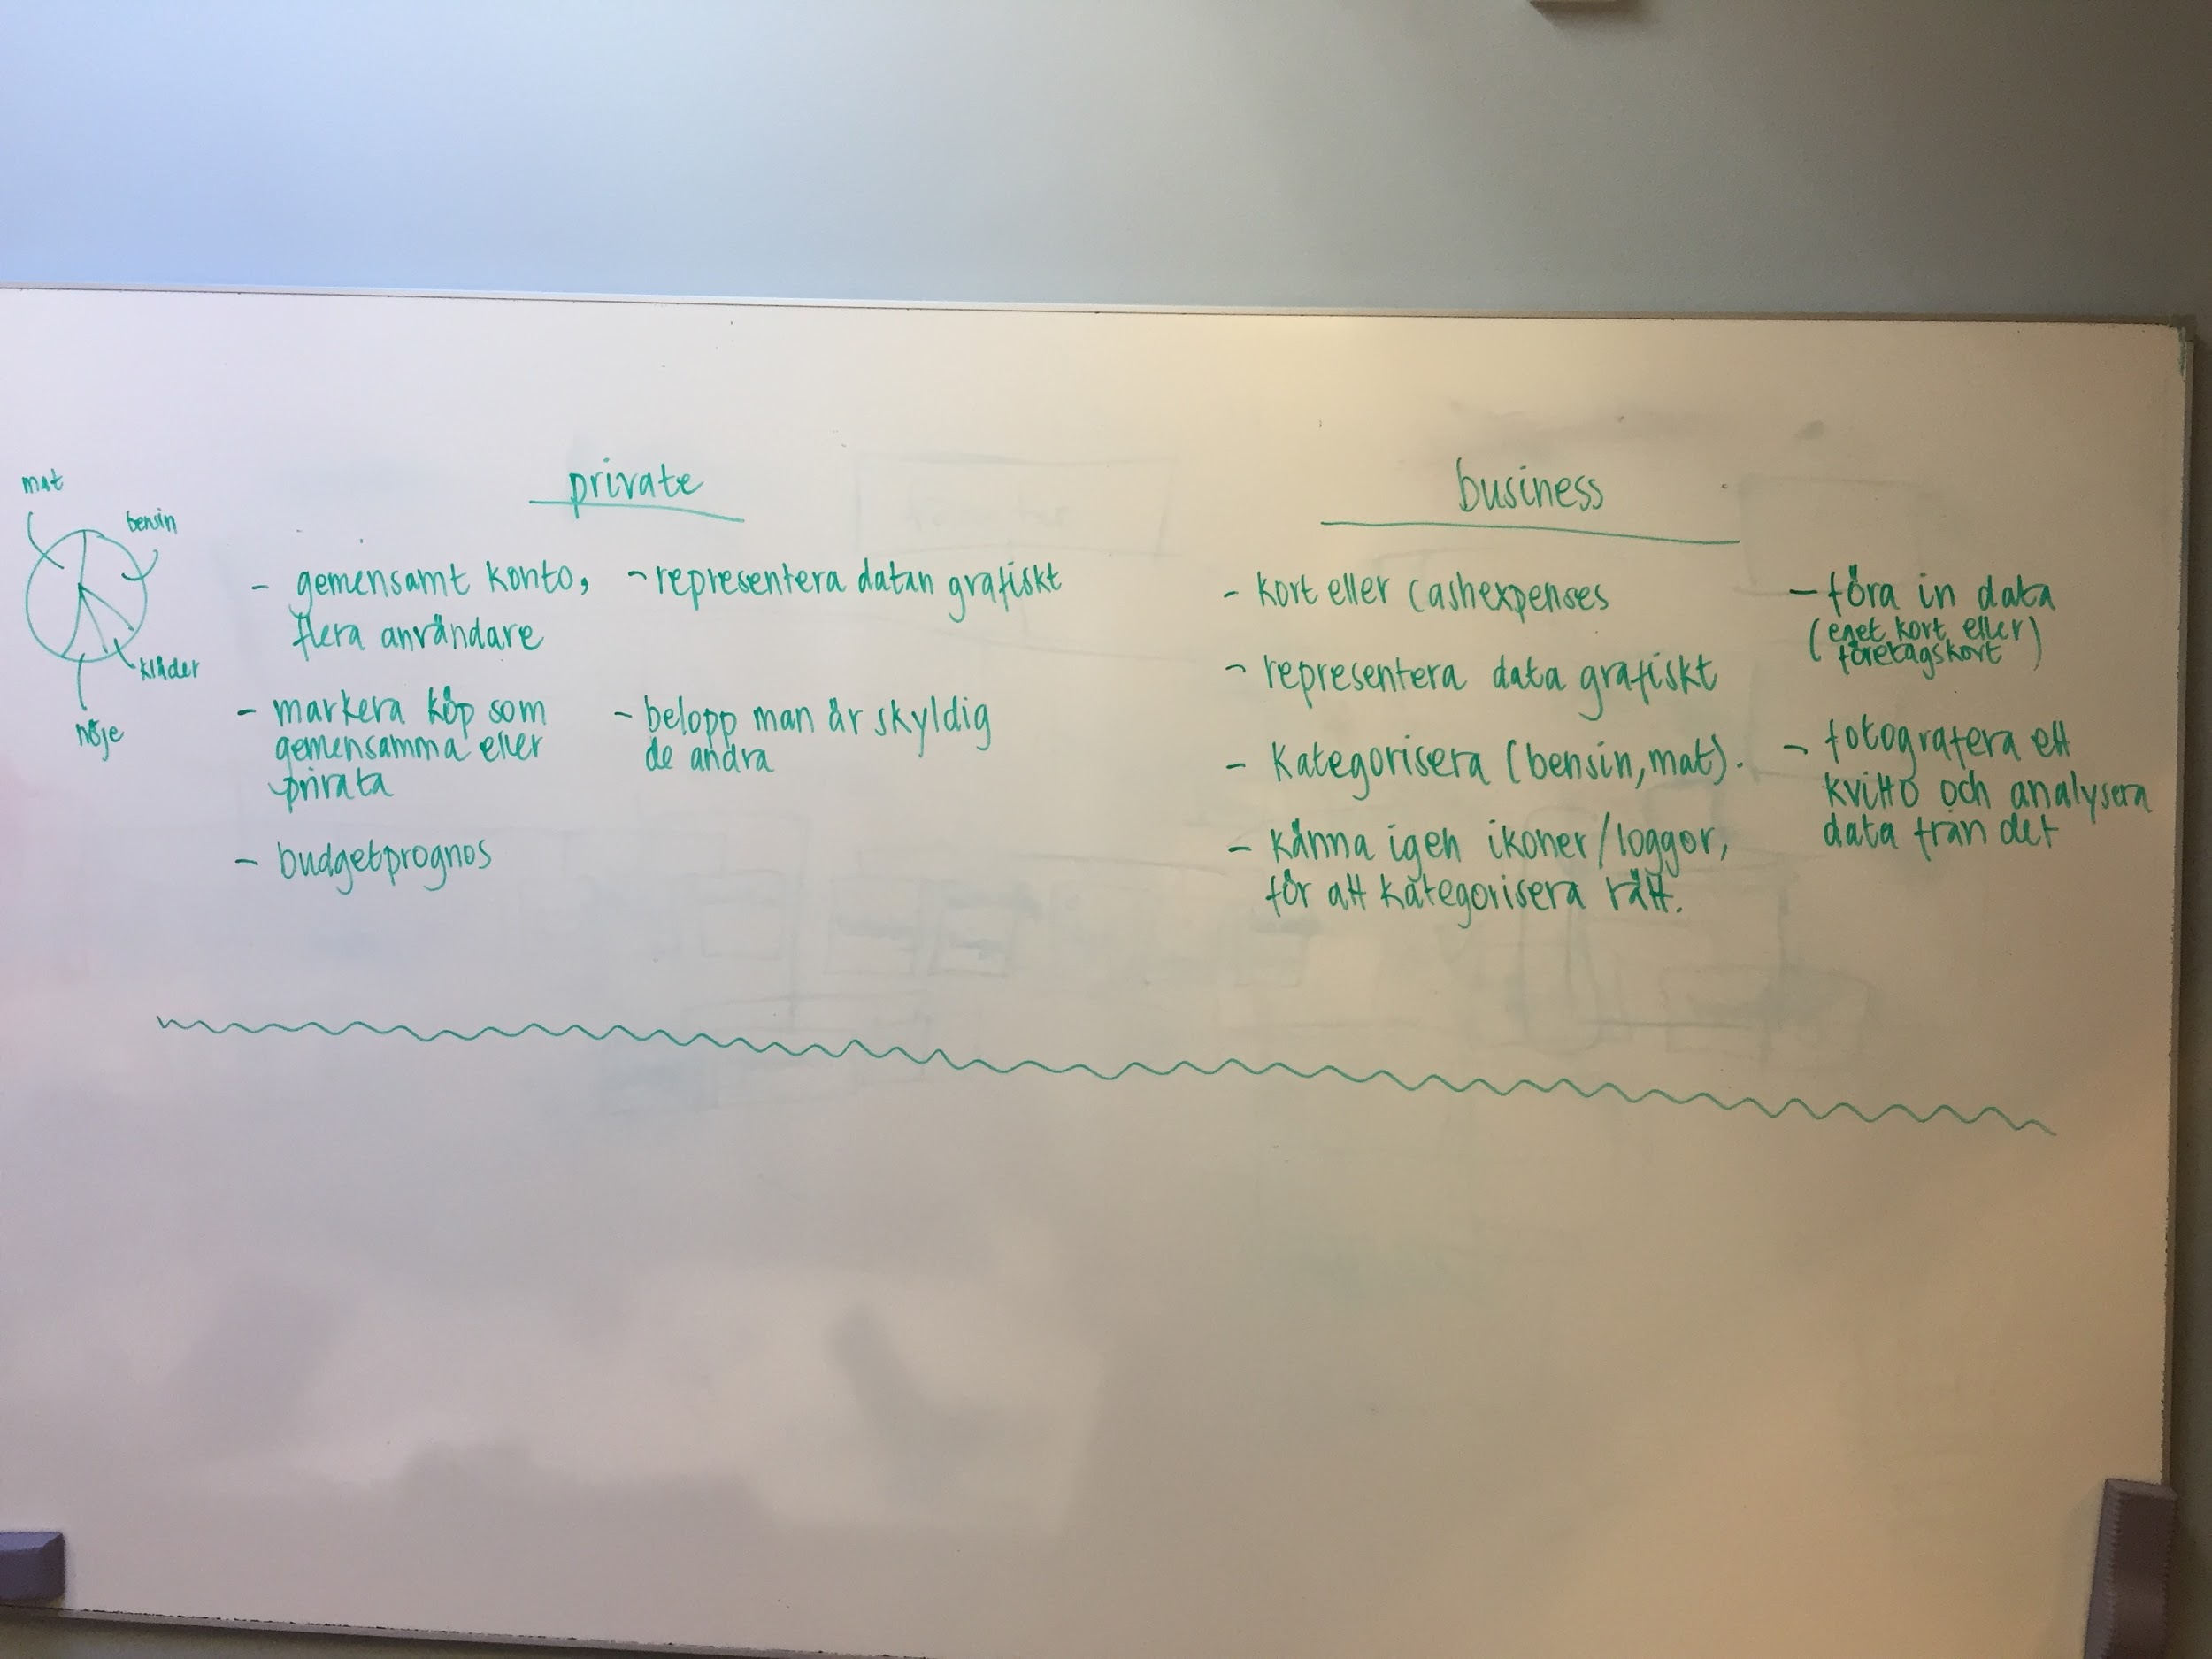 mat
bensin
kläder
nöje
private
- gemensamt konto,
flera användare
- markera köp som
gemensamma eller
privata
- budgetprognos
- representera datan grafiskt
- belopp man är skyldig
de andra
business
- kort eller cashexpenses
- representera data grafiskt
- Kategorisera (bensin, mat).
- känna igen ikoner/loggor,
för att kategorisera rätt.
- föra in data
(eget kort eller
företagskort)
- fotografera ett
kvitto och analysera
data från det